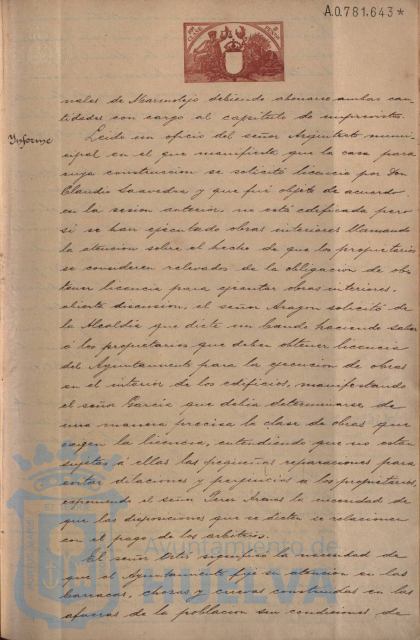 A.0.781.643*
nales de Marmolejo debiendo abonarse ambas can
tidades con cargo al capítulo de imprevistos.
Informe
Leido un oficio del señor Arquitecto muni-
cipal en el que manifiesta que la casa para
cuya construccion se solicitó licencia por Don
Claudio Saavedra y que fué objeto de acuerdo
en la sesion anterior, no está edificada pero
si se han ejecutado obras interiores llamando
la atencion sobre el hecho de que los propietarios
se consideren relevados de la obligacion de ob-
tener licencia para ejecutar obras interiores,
abierta discusion, el señor Aragon solicitó de
la Alcaldia que dicte un bando haciendo saber
á los propietarios que deben obtener licencia
del Ayuntamiento para la ejecucion de obras
en el interior de los edificios, manifestando
el señor Garcia que debia determinarse de
una manera precisa la clase de obras que
exigen la licencia, entendiendo que no estan
sujetas á ellas las pequeñas reparaciones para
evitar dilaciones y perjuicios á los propietarios,
exponiendo el señor la necesidad de
que las disposiciones que se dicten se relacionen
con el pago de los arbitrios.
El señor significó la necesidad de
que el Ayuntamiento fije su atencion en las
barracas, chozas y cuevas construidas en las
afueras de la poblacion sin condiciones de
Ayuntamiento de
HUELVA